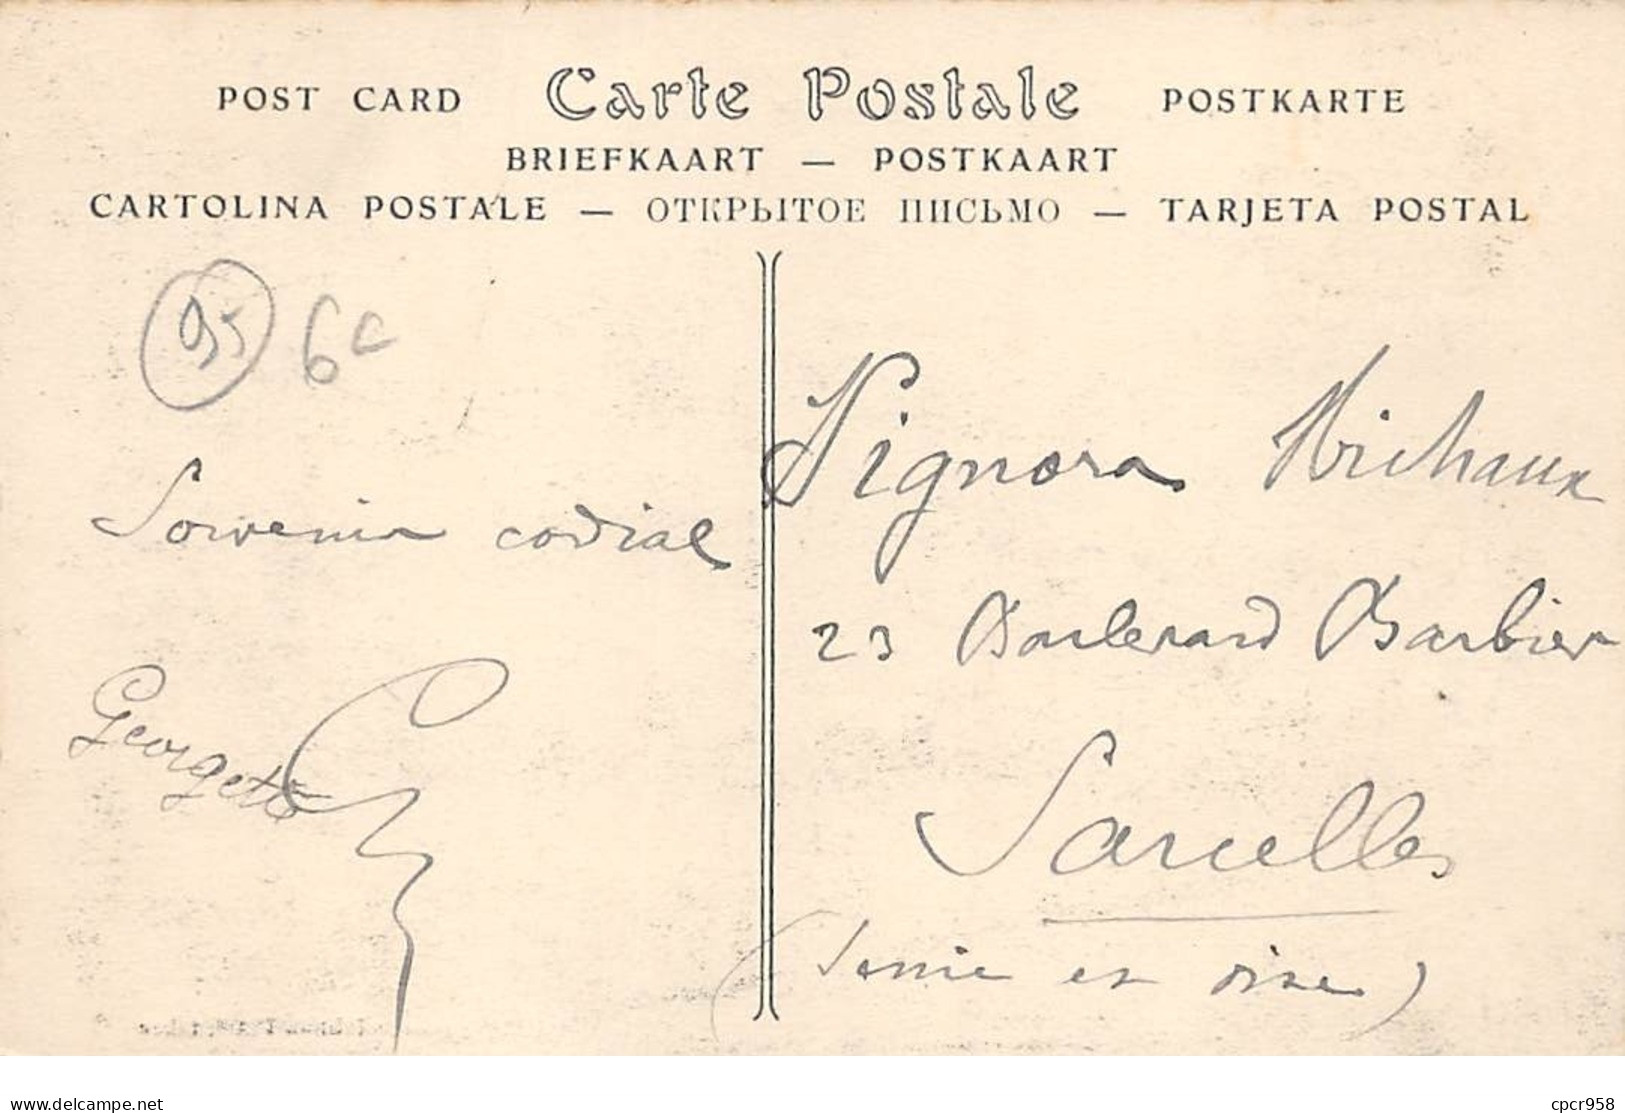 POST CARD Carte Postale POSTKARTE
BRIEFKAART — POSTKAART
CARTOLINA POSTALE — ОТКРЫТОЕ ПИСЬМО — TARJETA POSTAL
95 6c
Souvenir codial
Georgette
Signora Michaux
23 Boulevard Barbier
Sarcelles
(Seine et Oise)
delcampe.net
cpcr958